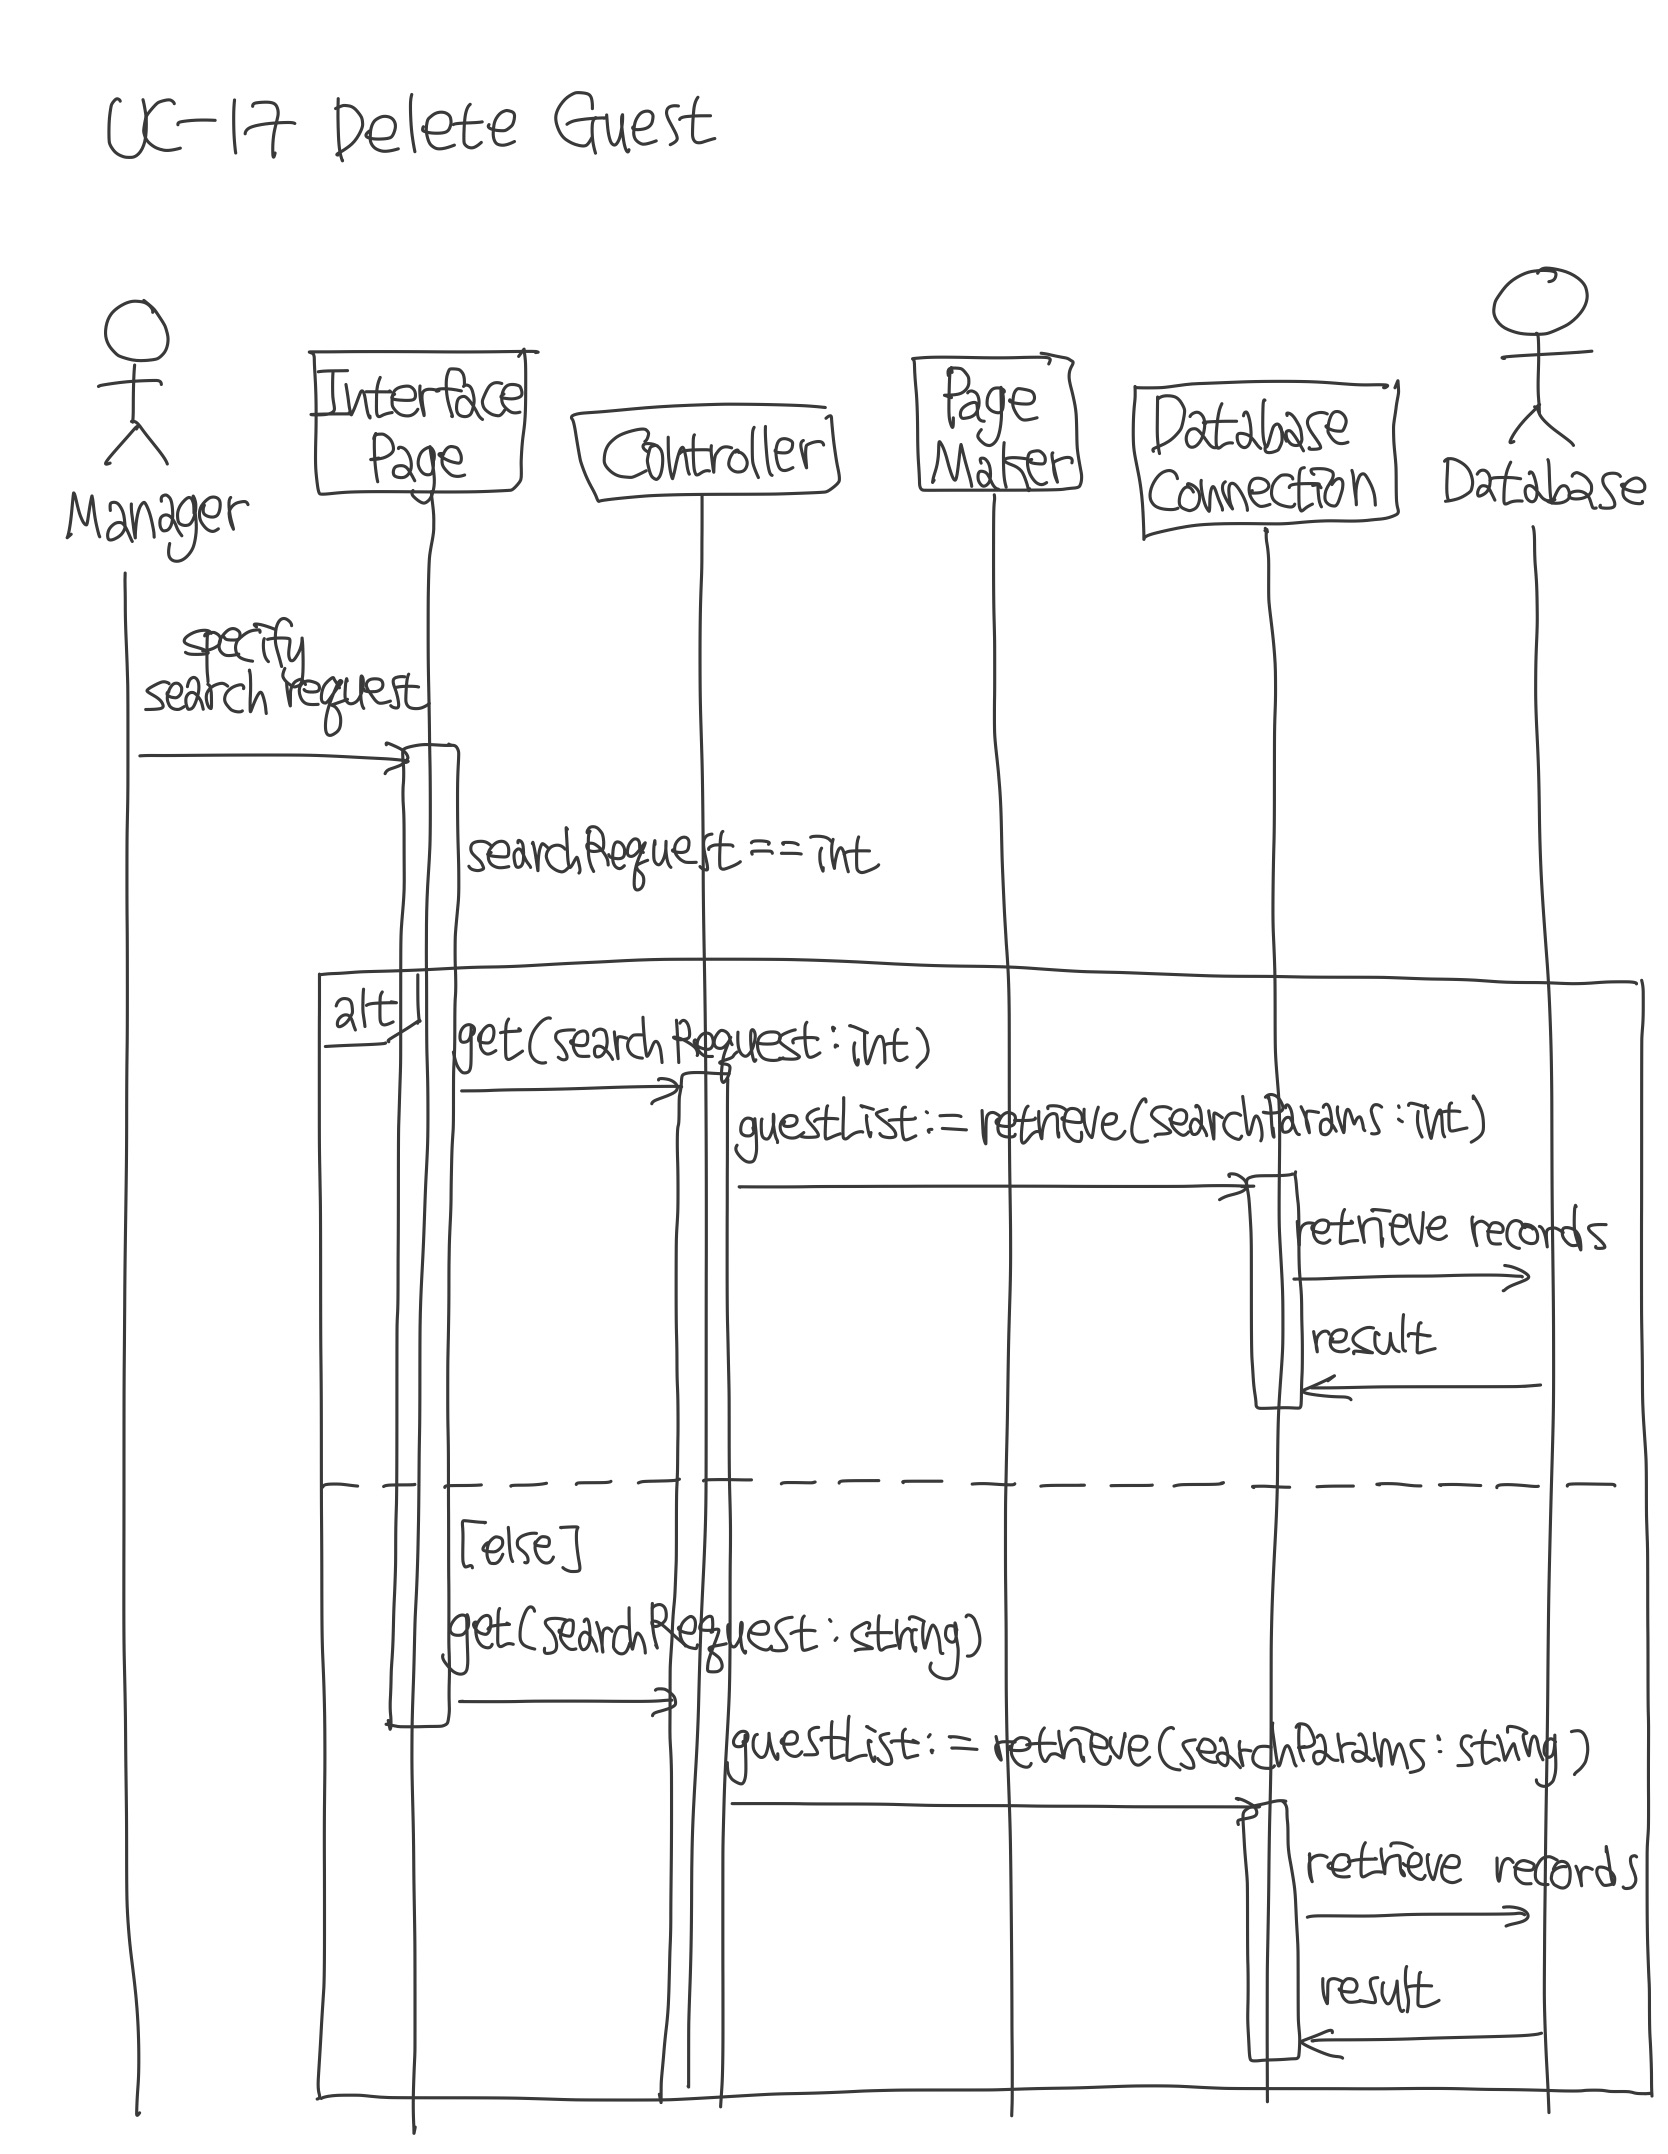 UC-17 Delete Guest
Manager
Interface
Page
Controller
Page
Maker
Database
Connection
Database
specify
search request
searchRequest == int
alt
get(searchRequest : int)
guestList := retrieve(searchParams : int)
retrieve records
result
[else]
get(searchRequest : string)
guestList := retrieve(searchParams : string)
retrieve records
result